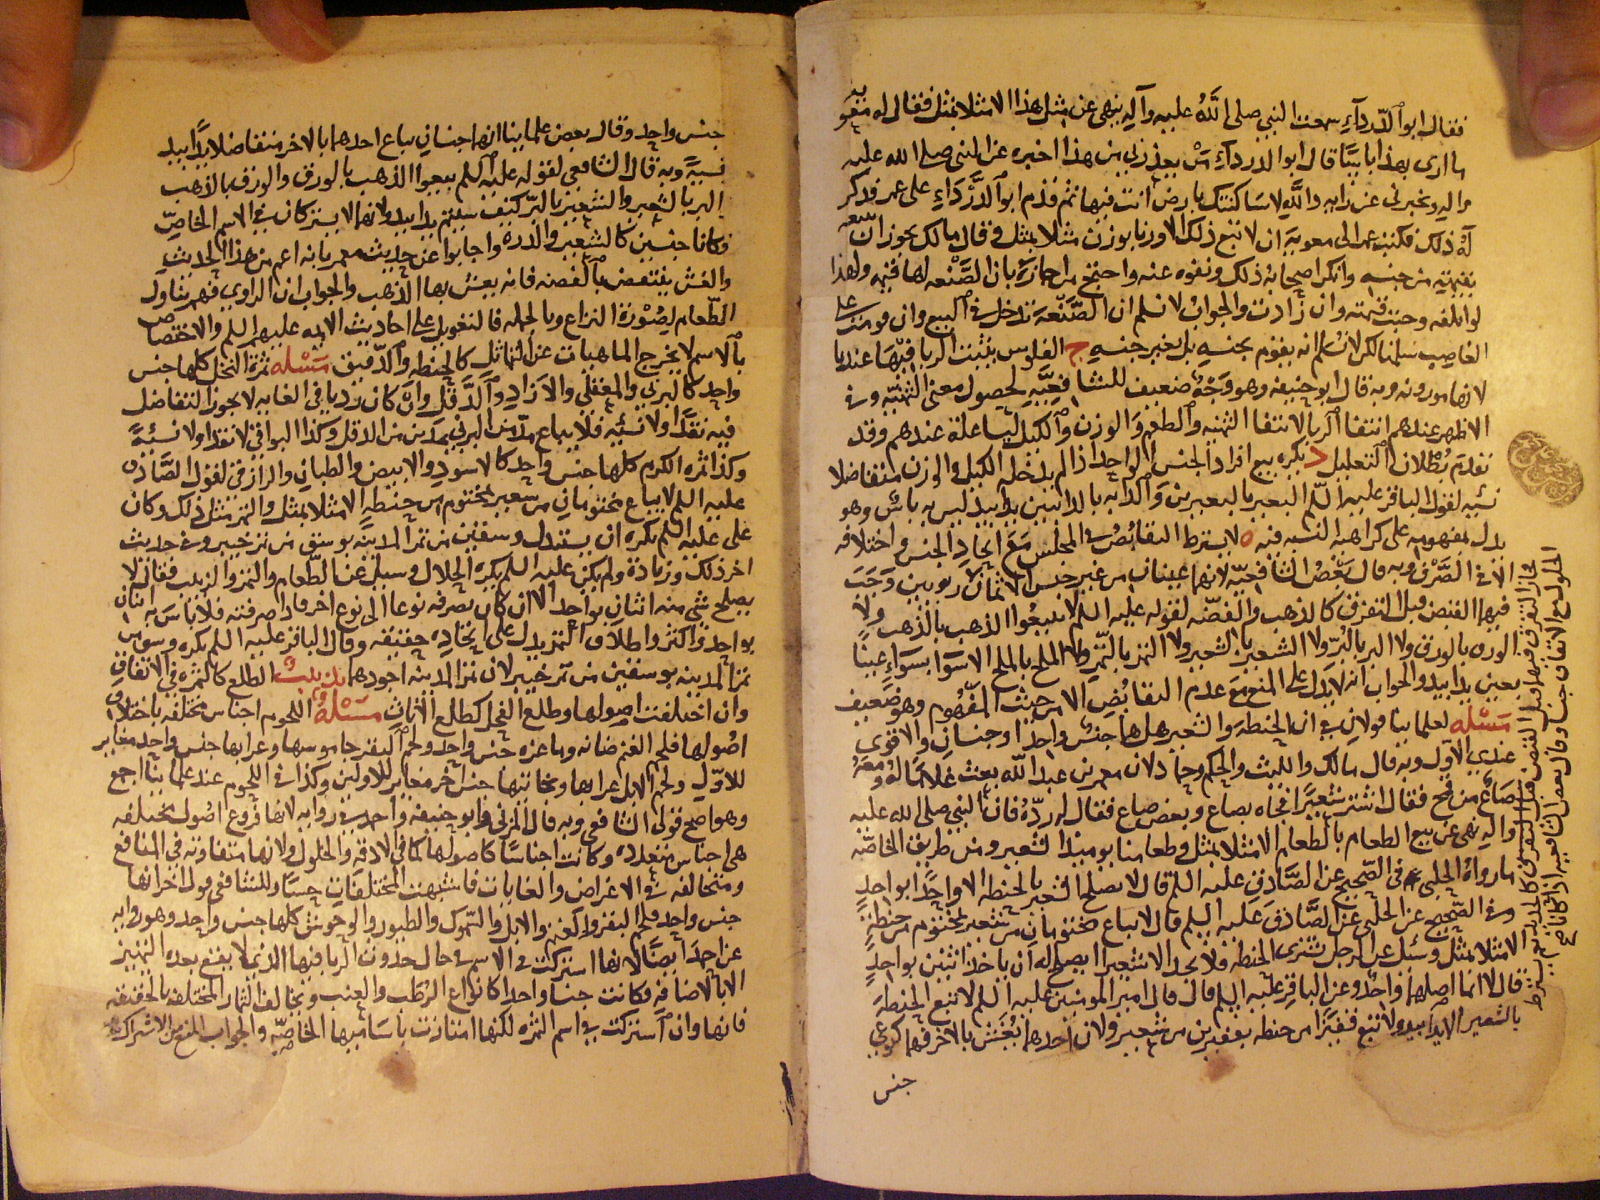 فقال ابو الدرداء سمعت النبي صلى الله عليه وآله ينهى عن مثل هذا الا مثلا بمثل فقال له معوية
ما ارى بهذا باسا قال ابو الدرداء من يعذرني من هذا اخبره عن النبي صلى الله عليه
واله ويخبرني عن رايه والله لا ساكنتك بارض انت فيها ثم قدم ابو الدرداء على عمر فذكر
له ذلك فكتب عمر الى معوية ان لا تبع ذلك الا وزنا بوزن مثلا بمثل وقال مالك يجوز ان يبيعه
بقيمته من جنسه وانكر اصحابه ذلك ونفوه عنه واحتج من اجازه بان الصنعة لها قيمة ولهذا
لو اتلفه وجبت قيمته وان زادت والجواب لا نسلم ان الصنعة تدخل في البيع وان قومت على
الغاصب سلمنا لكن لا نسلم انه يقوم بجنسه بل بغير جنسه ج الفلوس يثبت الربا فيها عندنا
لانها موزونة وبه قال ابو حنيفة وهو وجه ضعيف للشافعية لحصول معنى الثمنية وفي
الاظهر عندهم انتفاء الربا لانتفاء الثمنية والطعم والوزن والكيل ليسا علة عندهم وقد
تقدم بطلان التعليل د يكره بيع افراد الجنس الواحد اذا لم يدخله الكيل والوزن متفاضلا
نسية لقول الباقر عليه السلم البعير بالبعيرين والدابة بالدابتين يدا بيد ليس به باس وهو
يدل بمفهومه على كراهية النسية فيه ه لا يشترط التقابض في المجلس مع اتحاد الجنس واختلافه
الا في الصرف وبه قال بعض الشافعية لانهما عينان من غير جنس الاثمان
فيهما القبض قبل التفرق كالذهب والفضة لقوله عليه السلم لا تبيعوا الذهب بالذهب ولا
الورق بالورق ولا البر بالبر ولا الشعير بالشعير ولا التمر بالتمر ولا الملح بالملح الا سواء بسواء عينا
بعين يدا بيد والجواب انه لا يدل على المنع مع عدم التقابض الا من حيث المفهوم وهو ضعيف
مسئلة لعلمائنا قولان في ان الحنطة والشعير هل هما جنس واحد او جنسان والاقوى
عندي الاول وبه قال مالك والليث والحكم وحماد لان معمر بن عبد الله بعث غلاما له ومعه
صاع من قمح فقال اشتر شعيرا فجاء بصاع وبعض صاع فقال له رده فان النبي صلى الله عليه
واله نهى عن بيع الطعام بالطعام الا مثلا بمثل وطعامنا يومئذ الشعير ومن طريق الخاصة
ما رواه الحلبي في الصحيح عن الصادق عليه السلم قال لا يصلح الشعير بالحنطة الا واحدا بواحد
وفي الصحيح عن الحلبي عن الصادق عليه السلم قال لا يباع مختومان من شعير بمختوم من حنطة
الا مثلا بمثل وسئل عن الرجل يشتري الحنطة فلا يجد الا شعيرا ايصلح له ان ياخذ اثنين بواحد
قال لا انما اصلهما واحد وعن الباقر عليه السلم قال قال امير المؤمنين عليه السلم لا تبع الحنطة
بالشعير الا يدا بيد ولا تبع قفيزا من حنطة بقفيزين من شعير ولان احدهما يغش بالآخر فهما كنوعي
جنس
جنس واحد وقال بعض علمائنا انهما جنسان يباع احدهما بالاخر متفاضلا يدا بيد
نسية وبه قال الشافعي لقوله عليه السلم بيعوا الذهب بالورق والورق بالذهب
البر بالشعير والشعير بالبر كيف شئتم يدا بيد ولانهما لا يشتركان في الاسم الخاص
فكانا جنسين كالشعير والذرة واجابوا عن حديث معمر بانه اعم من هذا الحديث
والغش ينتقض بالفضة فانه يغش بها الذهب والجواب ان الراوي فهم تناول
الطعام لصورة النزاع وبالجملة فالتعويل على احاديث الائمة عليهم السلم والاختصاص
بالاسم لا يخرج الماهيات عن التماثل كالحنطة والدقيق مسئلة ثمرة النخل كلها جنس
واحد كالبرني والمعقلي والآزاد والدقل وان كان رديا في الغاية لا يجوز التفاضل
فيه نقدا ولا نسية فلا يباع مد من البرني بمدين من الدقل وكذا البواقي لا نقدا ولا نسية
وكذا ثمرة الكرم كلها جنس واحد كالاسود والابيض والطيان والرازقي لقول الصادق
عليه السلم لا يباع مختومان من شعير بمختوم من حنطة الا مثلا بمثل والتمر مثل ذلك وكان
علي عليه السلم يكره ان يستبدل وسقين من تمر المدينة بوسق من تمر خيبر وفي حديث
اخر ذلك وزيادة ولم يكن عليه السلم يكره الحلال وسئل عن الطعام والتمر والزبيب فقال لا
يصلح شي منه اثنان بواحد الا ان كان يصرفه نوعا الى نوع اخر فاذا صرفته فلا باس به اثنان
بواحد واكثر واطلاق التمر يدل على اتحاده حقيقة وقال الباقر عليه السلم يكره وسق من
تمر المدينة بوسقين من تمر خيبر لان تمر المدينة اجودهما تذنيب الطلع كالثمرة في الاتفاق
وان اختلفت اصولها وطلع الفحل كطلع الاناث مسئلة اللحوم اجناس مختلفة باختلاف
اصولها فلحم الغنم ضانه وماعزه جنس واحد ولحم البقر جاموسها وعرابها جنس واحد مغاير
للاول ولحم الابل عرابها وبخاتيها جنس اخر مغاير للاولين وكذا في اللحوم عند علمائنا اجمع
وهو اصح قولي الشافعي وبه قال المزني وابو حنيفة واحمد في رواية لانها فروع اصول مختلفة
هي اجناس متعددة وكانت اجناسا كاصولها كما في الادقة والخلول ولانها متفاوتة في المنافع
ومتخالفة في الاغراض والغايات فاشبهت المختلفات جنسا وللشافعي قول اخر انها
جنس واحد فلحم البقر والغنم والابل والسموك والطيور والوحوش كلها جنس واحد وهو رواية
عن احمد ايضا لانها اشتركت في الاسم في حال حدوث الربا فيها الذي لا يقع بعده التمييز
الا بالاضافة فكانت جنسا واحدا كانواع الرطب والعنب ويخالف الثمار المختلفة بالحقيقة
فانها وان اشتركت في اسم الثمرة لكنها امتازت باساميها الخاصة والجواب المنع من الاشتراك